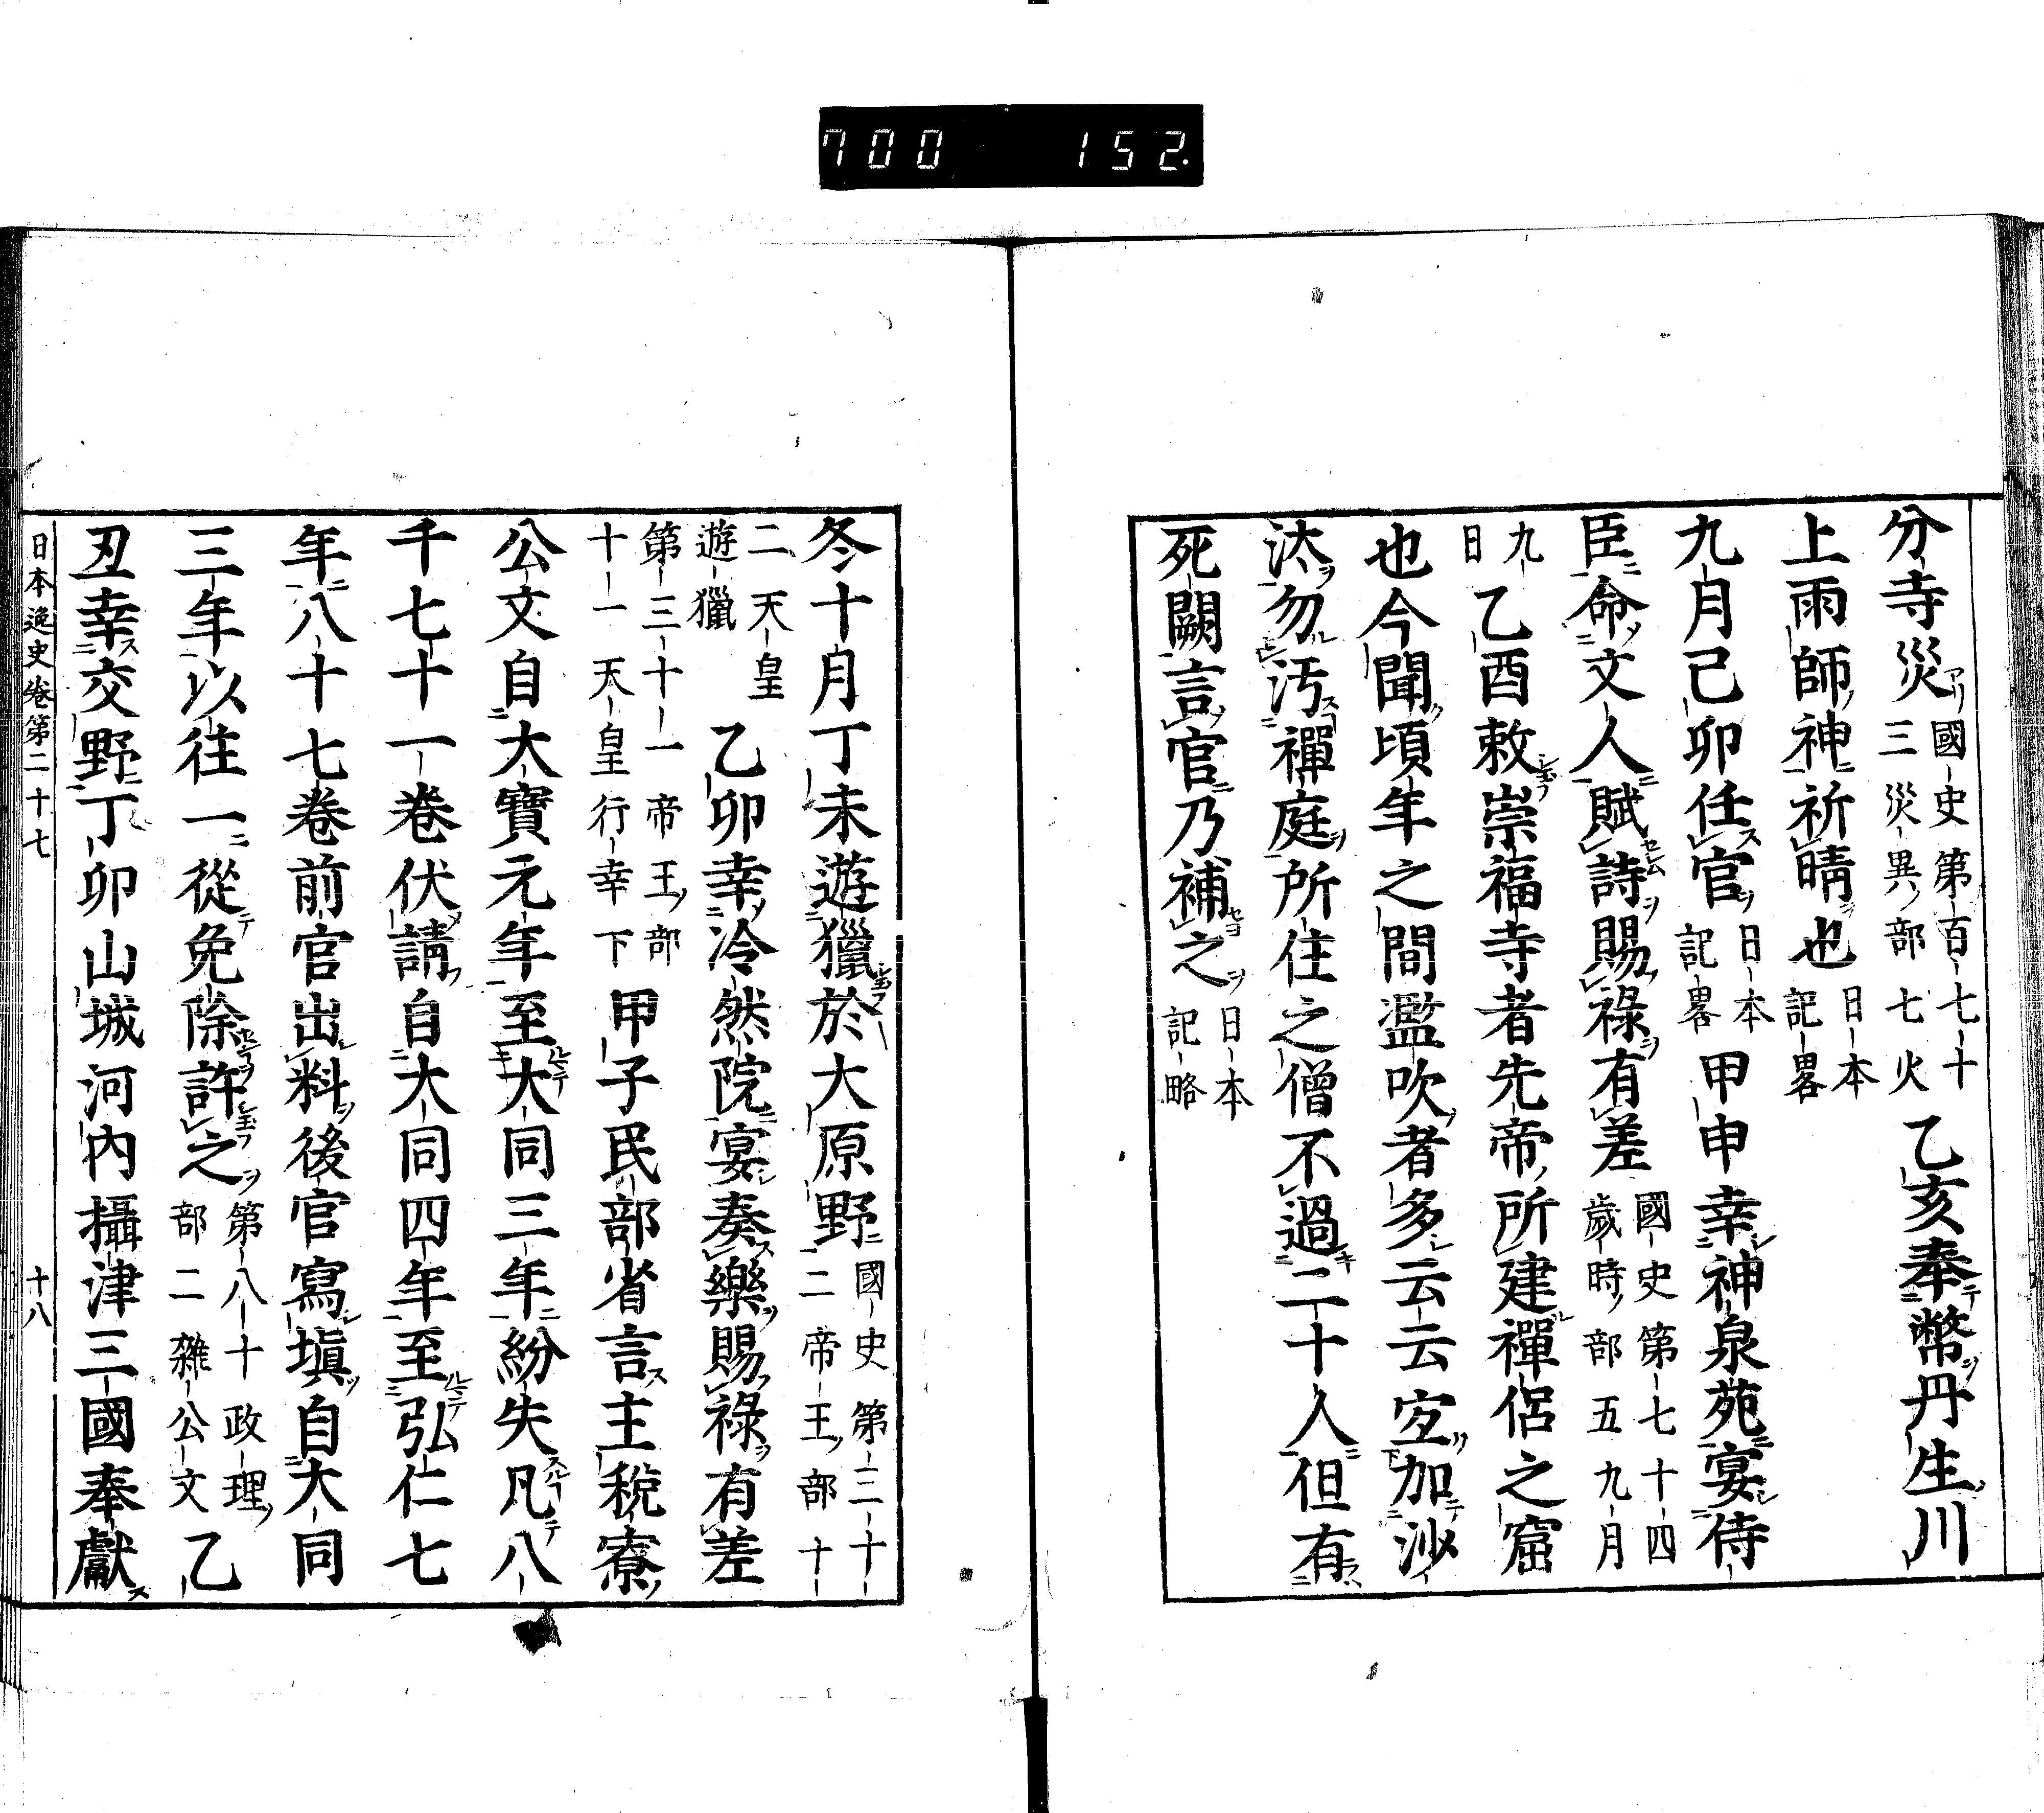 700 152
分寺災國史第百七十三災異部七火乙亥奉幣丹生川
上雨師神祈晴也日本記畧
九月己卯任官日本記畧甲申幸神泉苑宴侍
臣命文人賦詩賜祿有差國史第七十四歲時部五九月
九日乙酉敕崇福寺者先帝所建禪侶之窟
也今聞頃年之間濫吹者多云云宜加沙
汰勿汚禪庭所住之僧不過二十人但有
死闕言官乃補之日本記略
冬十月丁未遊獵於大原野國史第三十二帝王部十
二天皇遊獵乙卯幸冷然院宴奏樂賜祿有差
第三十一帝王部十一天皇行幸下甲子民部省言主稅寮
公文自大寶元年至大同三年紛失凡八
千七十一卷伏請自大同四年至弘仁七
年八十七卷前官出料後官寫塡自大同
三年以往一從免除許之第八十政理部二雜公文乙
丑幸交野丁卯山城河內攝津三國奉獻
日本逸史卷第二十七 十八